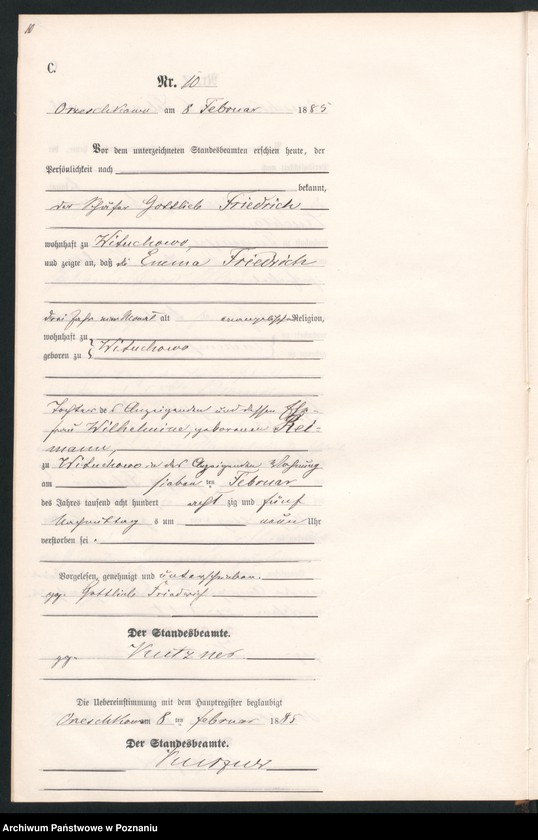 10
C.
Nr. 10
Orzeschkowo am 8 Februar 1885
Vor dem unterzeichneten Standesbeamten erschien heute, der
Persönlichkeit nach
bekannt,
der Schäfer Gottlieb Friedrich
wohnhaft zu Wituchowo,
und zeigte an, daß die Emma Friedrich
drei Jahr neun Monat alt evangelischer Religion,
wohnhaft zu
geboren zu } Wituchowo
Tochter des Anzeigenden und dessen Ehe-
frau Wilhelmine, geborenen Rei-
mann,
zu Wituchowo in des Anzeigenden Wohnung
am sieben ten Februar
des Jahres tausend acht hundert acht zig und fünf
Nachmittag s um neun Uhr
verstorben sei.
Vorgelesen, genehmigt und unterschrieben.
gg. Gottlieb Friedrich
Der Standesbeamte.
gg. Kutzner
Die Uebereinstimmung mit dem Hauptregister beglaubigt
Orzeschkowo am 8 ten Februar 1885
Der Standesbeamte.
Kutzner
Archiwum Państwowe w Poznaniu